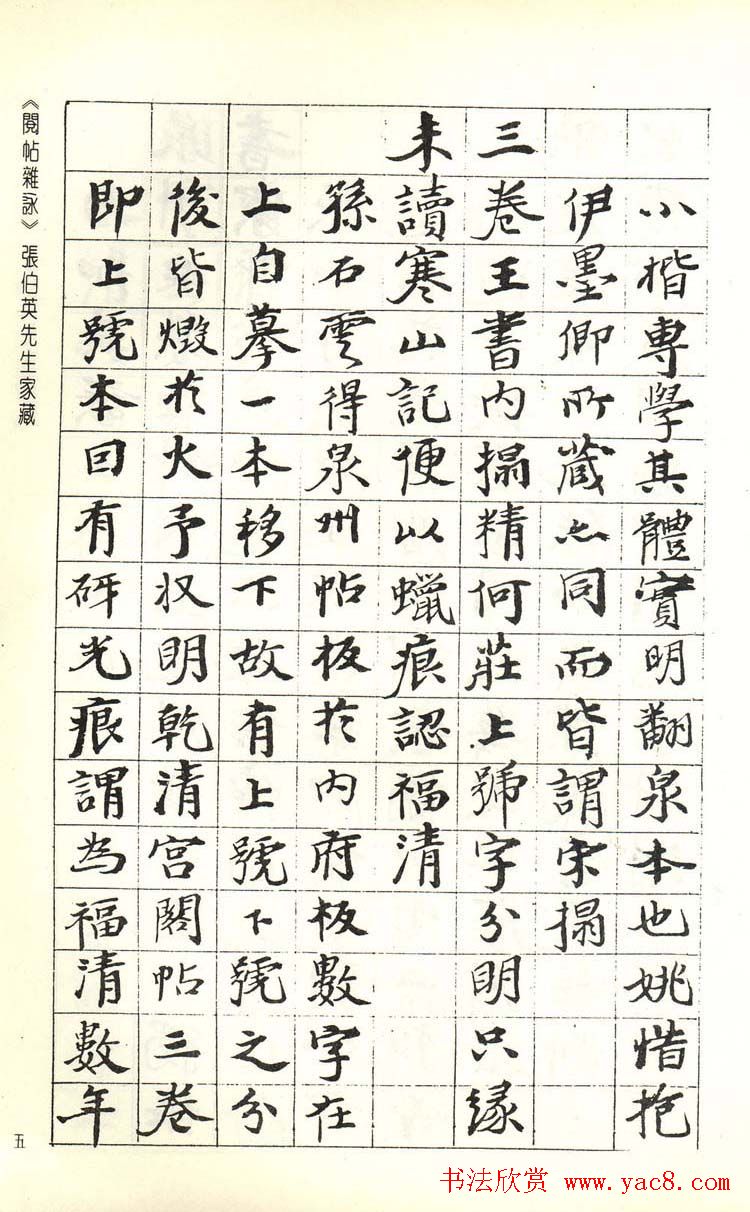 小楷專學其體實明翻泉本也姚惜抱
伊墨卿所藏亦同而皆謂宋搨
三卷王書內搨精何莊上號字分明只緣
未讀寒山記便以蠟痕認福清
孫石雲得泉州帖板於內府板數字在
上自摹一本移下故有上號下號之分
後皆燬於火予收明乾清宮閣帖三卷
即上號本囙有砑光痕謂為福清數年
《閱帖雜詠》張伯英先生家藏
五
书法欣赏 www.yac8.com